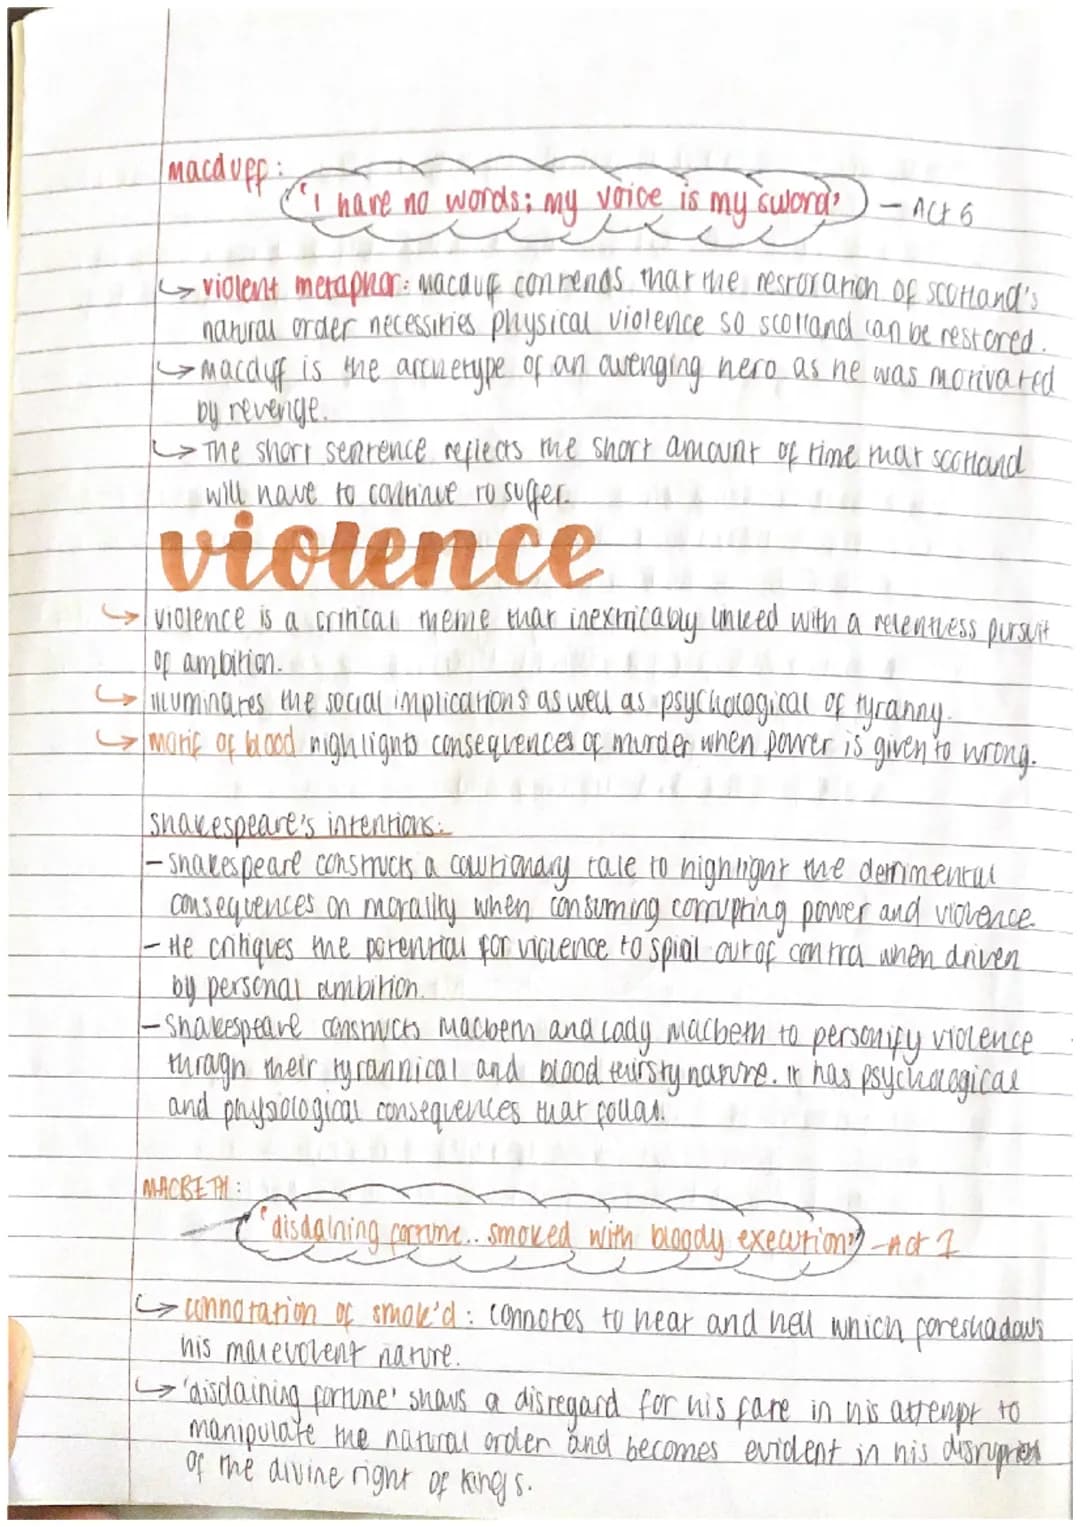 macduff:
"I have no words; my voice is my sword" – Act 6
↳ violent metaphor: macduff contends that the restoration of scotland's
natural order necessities physical violence so scotland can be restored.
↳ macduff is the archetype of an avenging hero as he was motivated
by revenge.
↳ The short sentence reflects the short amount of time that scotland
will have to continue to suffer.
violence
↳ violence is a critical theme that inextricably linked with a relentless pursuit
of ambition.
↳ illuminates the social implications as well as psychological of tyranny.
↳ motif of blood highlights consequences of murder when power is given to wrong.
Shakespeare's intentions:
– Shakespeare constructs a cautionary tale to highlight the detrimental
consequences on morality when consuming corrupting power and violence.
– He critiques the potential for violence to spiral out of control when driven
by personal ambition.
– Shakespeare constructs Macbeth and Lady Macbeth to personify violence
through their tyrannical and blood thirsty nature. It has psychological
and physiological consequences that follow.
MACBETH:
"disdaining fortune.. smoked with bloody execution" – Act 1
↳ connotation of smok'd: connotes to heat and hell which foreshadows
his malevolent nature.
↳ 'disdaining fortune' shows a disregard for his fate in his attempt to
manipulate the natural order and becomes evident in his disruption
of the divine right of kings.